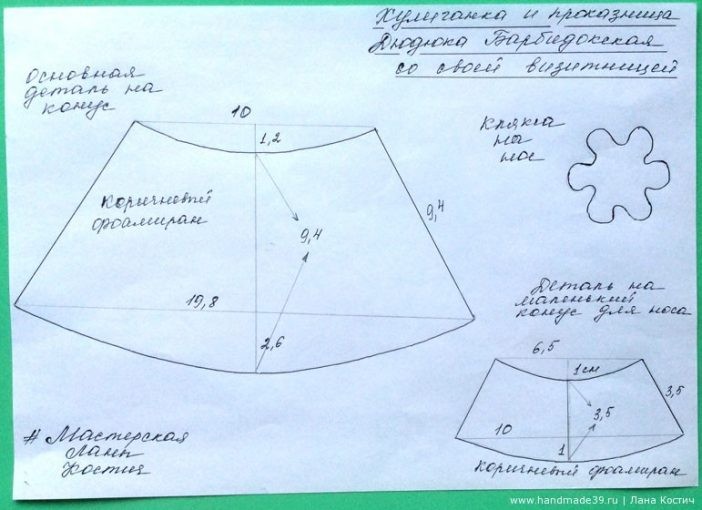 Хулиганка и проказница
Дюдюка Барбидокская
со своей визитницей
основная
деталь на
конус
10
1,2
коричневый
фоамиран
9,4
9,4
19,8
2,6
клякса
на
нос
Деталь на
маленький
конус для носа
6,5
1 см
3,5
3,5
10
1
коричневый фоамиран
# Мастерская
Ланы
Костич
www.handmade39.ru | Лана Костич